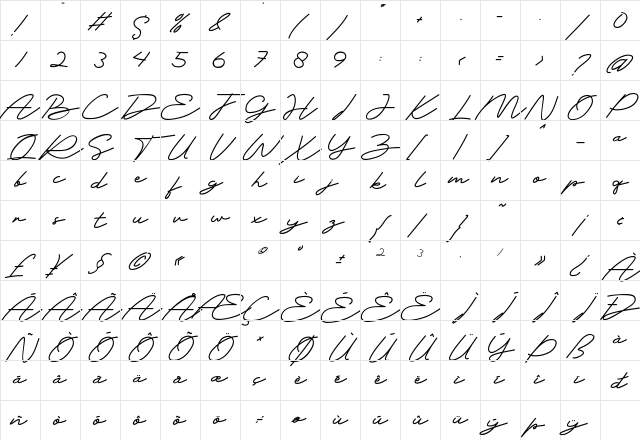 ! " # $ % & ' ( ) * + , - . / 0
1 2 3 4 5 6 7 8 9 : ; < = > ? @
A B C D E F G H I J K L M N O P
Q R S T U V W X Y Z [ \ ] ^ _ a
b c d e f g h i j k l m n o p q
r s t u v w x y z { | } ~ ¡ ¢
£ ¥ § © « ® ¯ ± 2 3 · 1 » ¿ À
Á Â Ã Ä Å Æ Ç È É Ê Ë Ì Í Î Ï Ð
Ñ Ò Ó Ô Õ Ö × Ø Ù Ú Û Ü Ý Þ ß à
á â ã ä å æ ç è é ê ë ì í î ï đ
ñ ò ó ô õ ö ÷ ø ù ú û ü ý þ ÿ